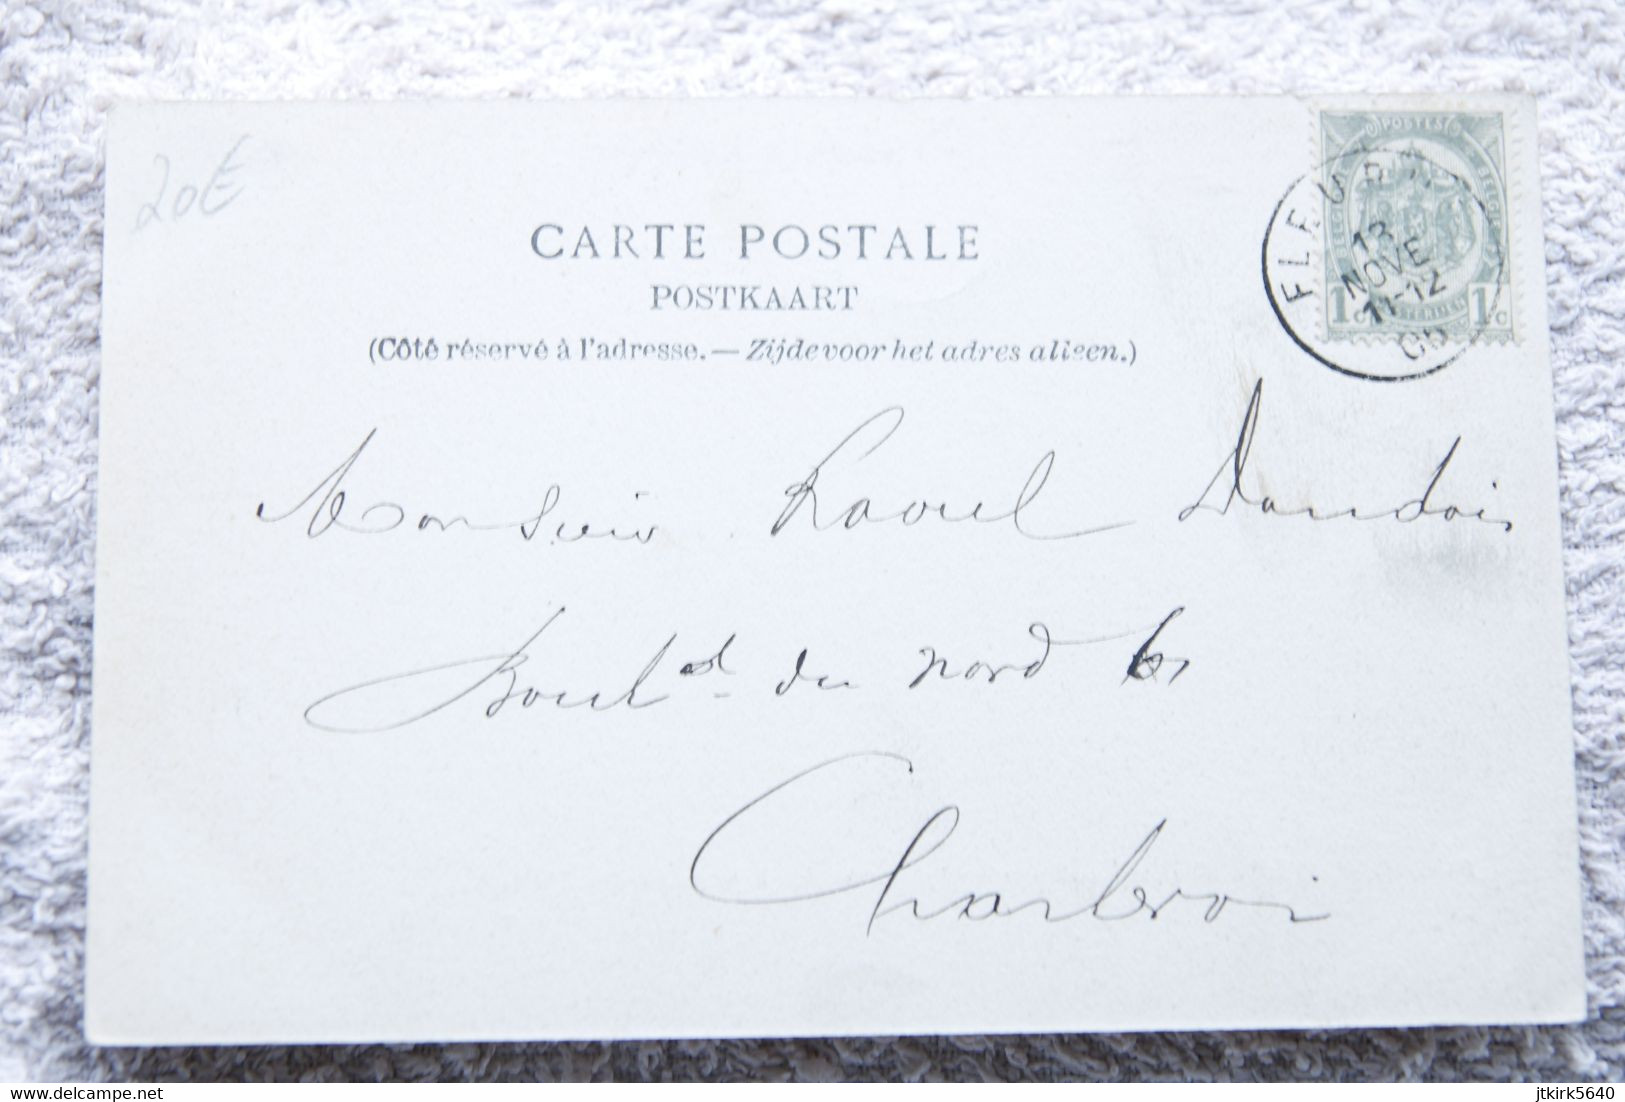 20€
CARTE POSTALE
POSTKAART
(Côté réservé à l'adresse. — Zijde voor het adres alleen.)
POSTES
BELGIQUE
1c
1c
FLEURUS
13
NOVE
11-12
05
Monsieur Raoul Dandois
Boul.d du nord 61
Charleroi
www.delcampe.net
jtkirk5640